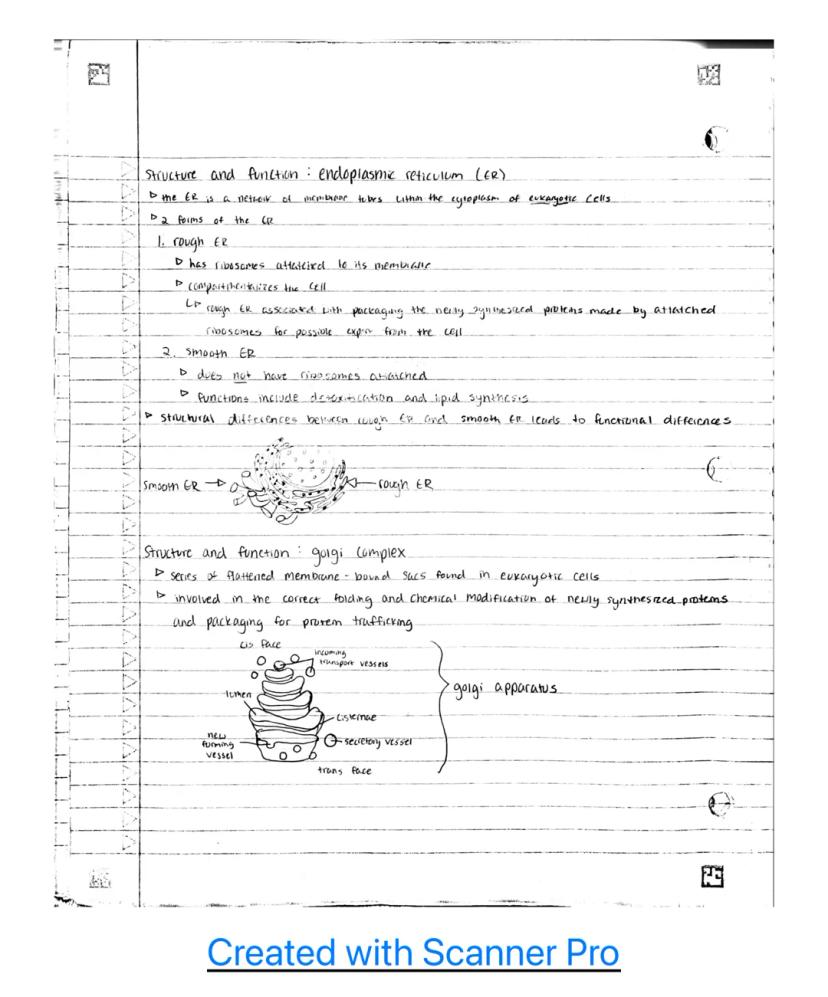 Structure and function : endoplasmic reticulum (ER)
▷ the ER is a network of membrane tubes within the cytoplasm of eukaryotic cells
▷ 2 forms of the ER
1. rough ER
▷ has ribosomes attatched to its membrane
▷ compartmentalizes the cell
↳ rough ER associated with packaging the newly synthesized proteins made by attatched
ribosomes for possible export from the cell
2. smooth ER
▷ does not have ribosomes attatched
▷ functions include detoxification and lipid synthesis
▷ structural differences between rough ER and smooth ER leads to functional differences
smooth ER → ← rough ER
Structure and function : golgi complex
▷ series of flattened membrane-bound sacs found in eukaryotic cells
▷ involved in the correct folding and chemical modification of newly synthesized proteins
and packaging for protein trafficking
cis face
incoming
transport vessels
golgi apparatus
lumen
cisternae
new
forming
vessel
secretory vessel
trans face
Created with Scanner Pro